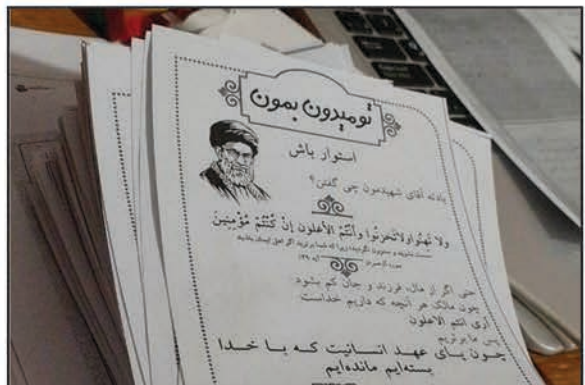 تو میدون بمون
استوار باش
یادته آقای شهیدمون چی گفتن؟
ولا تَهِنُوا ولا تَحزَنُوا وأنتُمُ الأعلَونَ إنْ كُنْتُمْ مُؤْمِنِينَ
حتی اگر از مال، فرزند و جان کم بشود
چون مالک هر آنچه که داریم خداست
آری انتم الاعلون
پس ما برتریم
چون پای عهد انسانیت که با خدا
بسته‌ایم مانده‌ایم